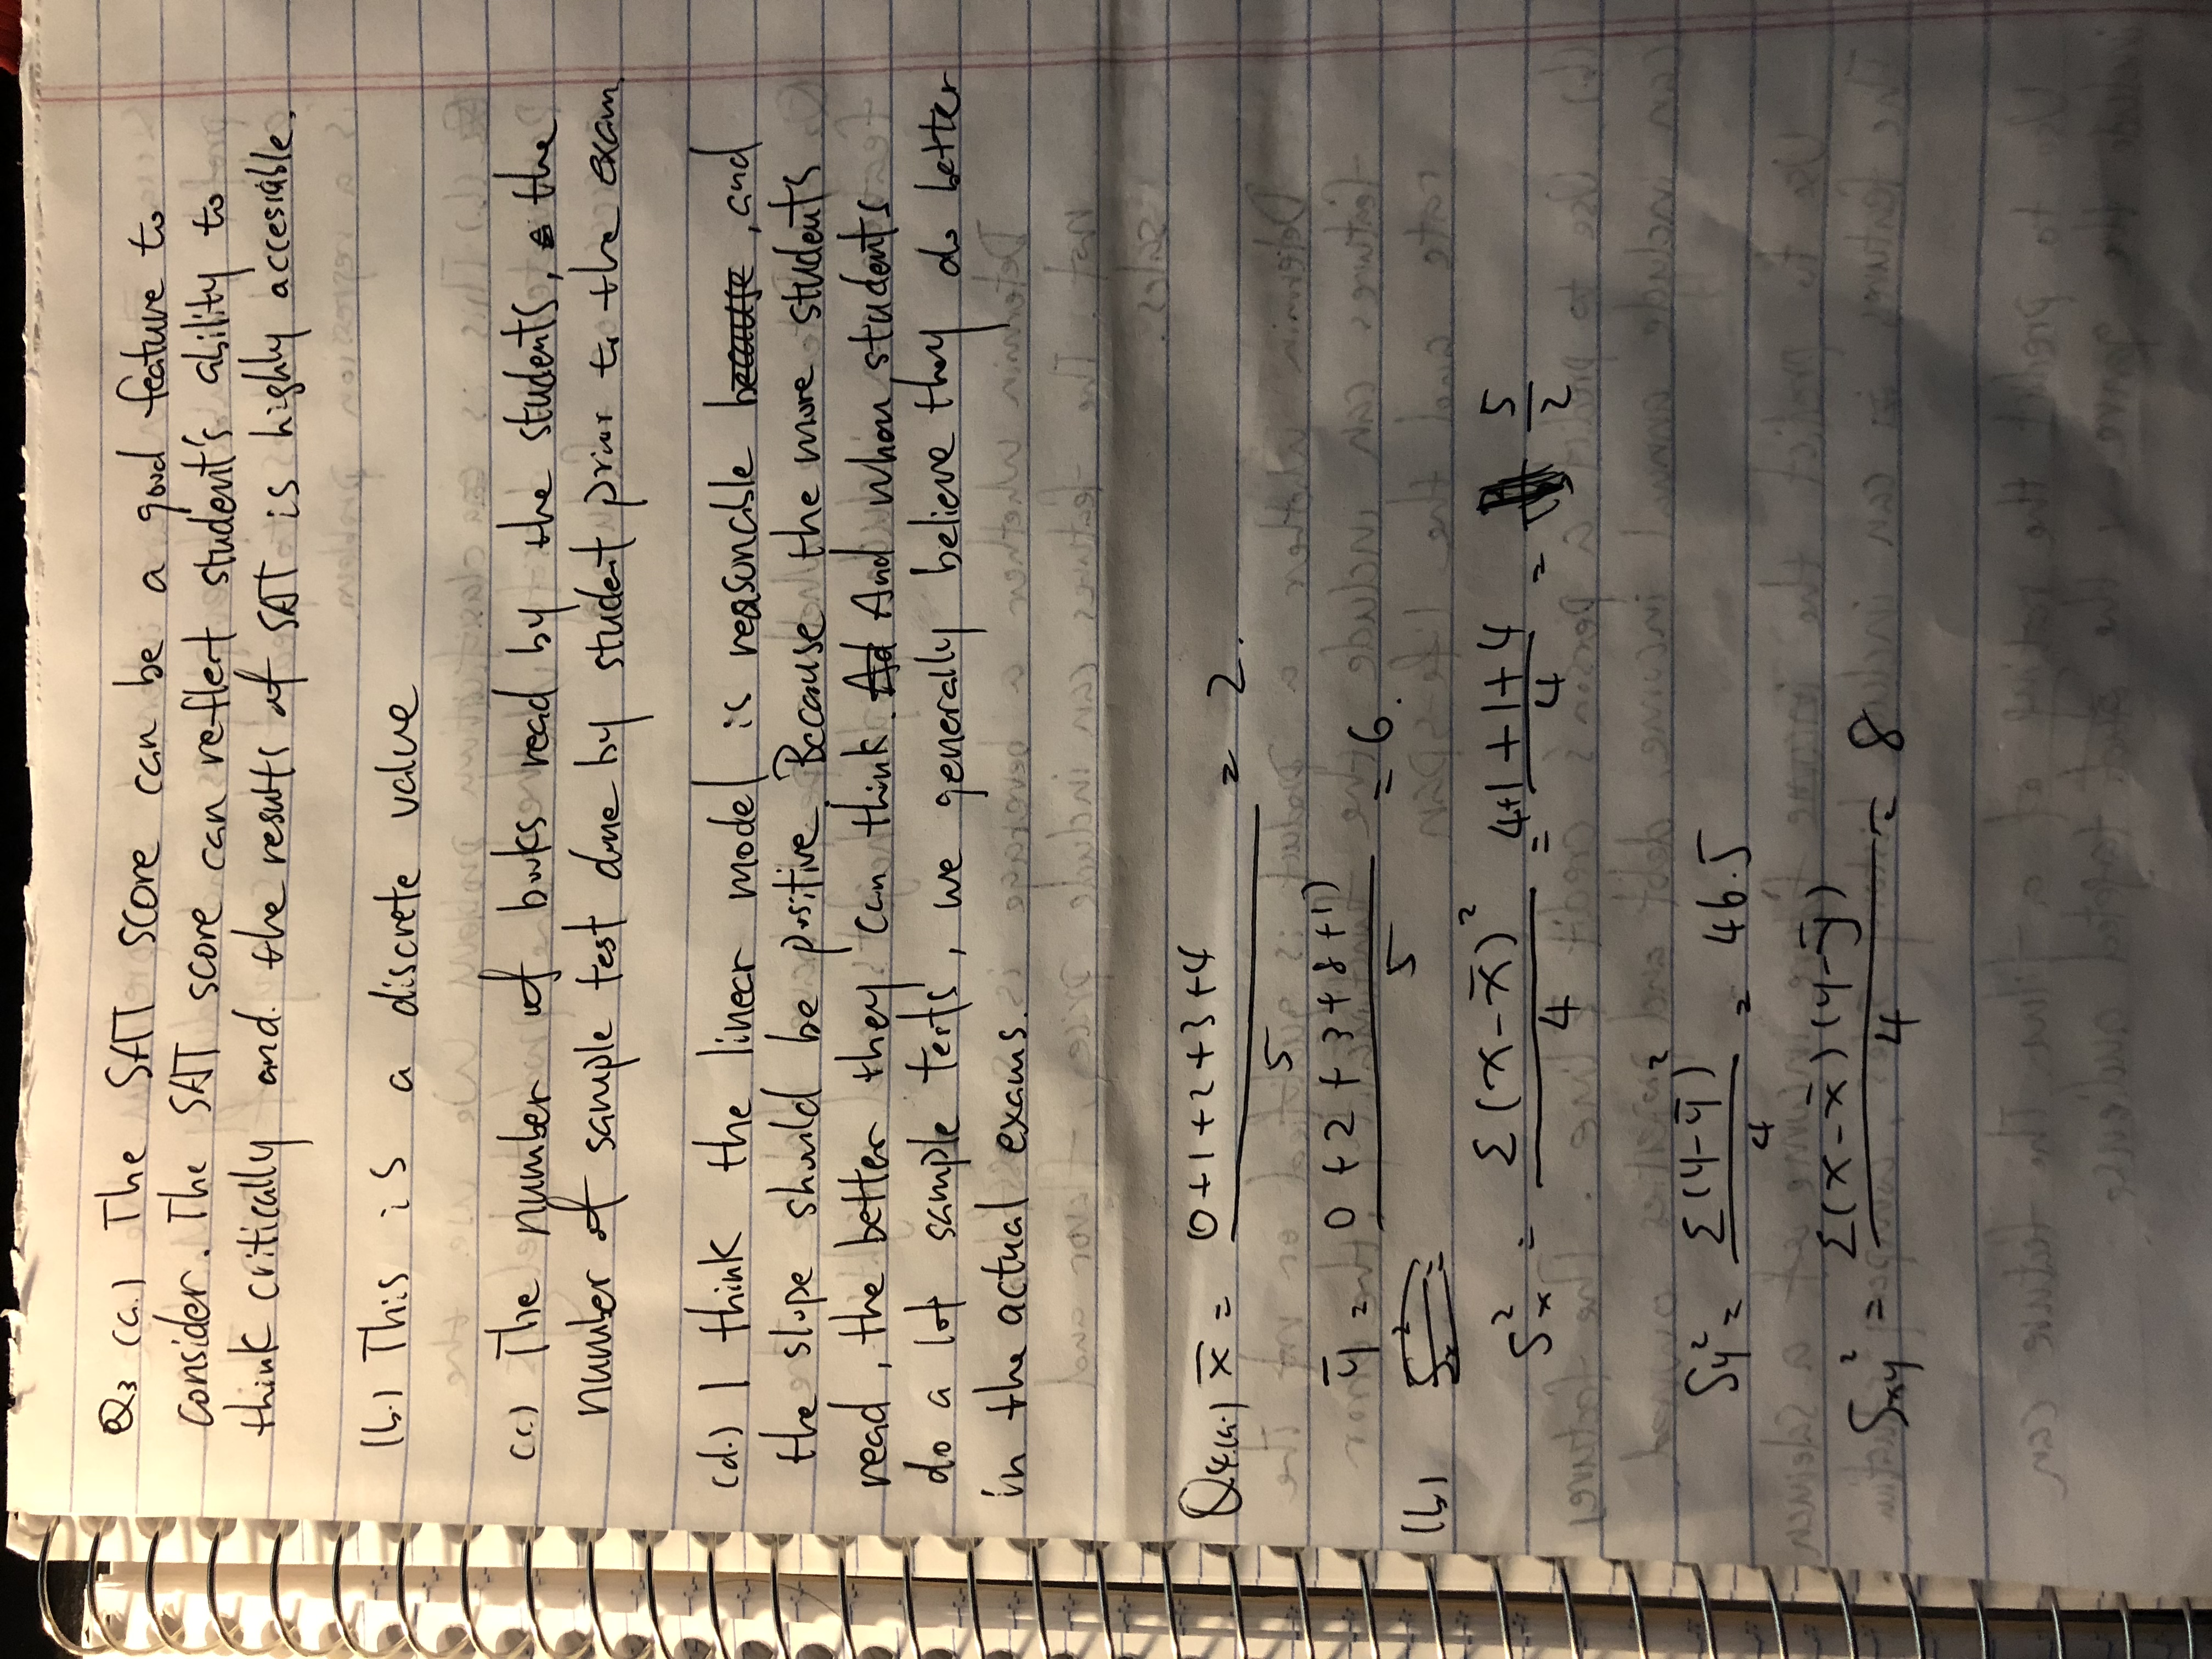 Q3 (a.) The SAT score can be a good feature to
consider. The SAT score can reflect student's ability to
think critically and. the results of SAT is highly accessiable.
(b.) This is a discrete value
(c.) The number of books read by the students, the
number of sample test done by student prior to the exam
(d.) I think the linear model is reasonable because, and
the slope should be positive. Because the more students
read, the better they can think. Ad And when students
do a lot sample tests, we generally believe they do better
in the actual exams.
Q4(a.) x̄ = (0+1+2+3+4)/5 = 2.
ȳ = (0+2+3+8+17)/5 = 6.
(b)
Sx² = Σ(x-x̄)²/4 = (4+1+1+4)/4 = 5/2
Sy² = Σ(y-ȳ)²/4 = 46.5
Sxy² = Σ(x-x̄)(y-ȳ)/4 = 8